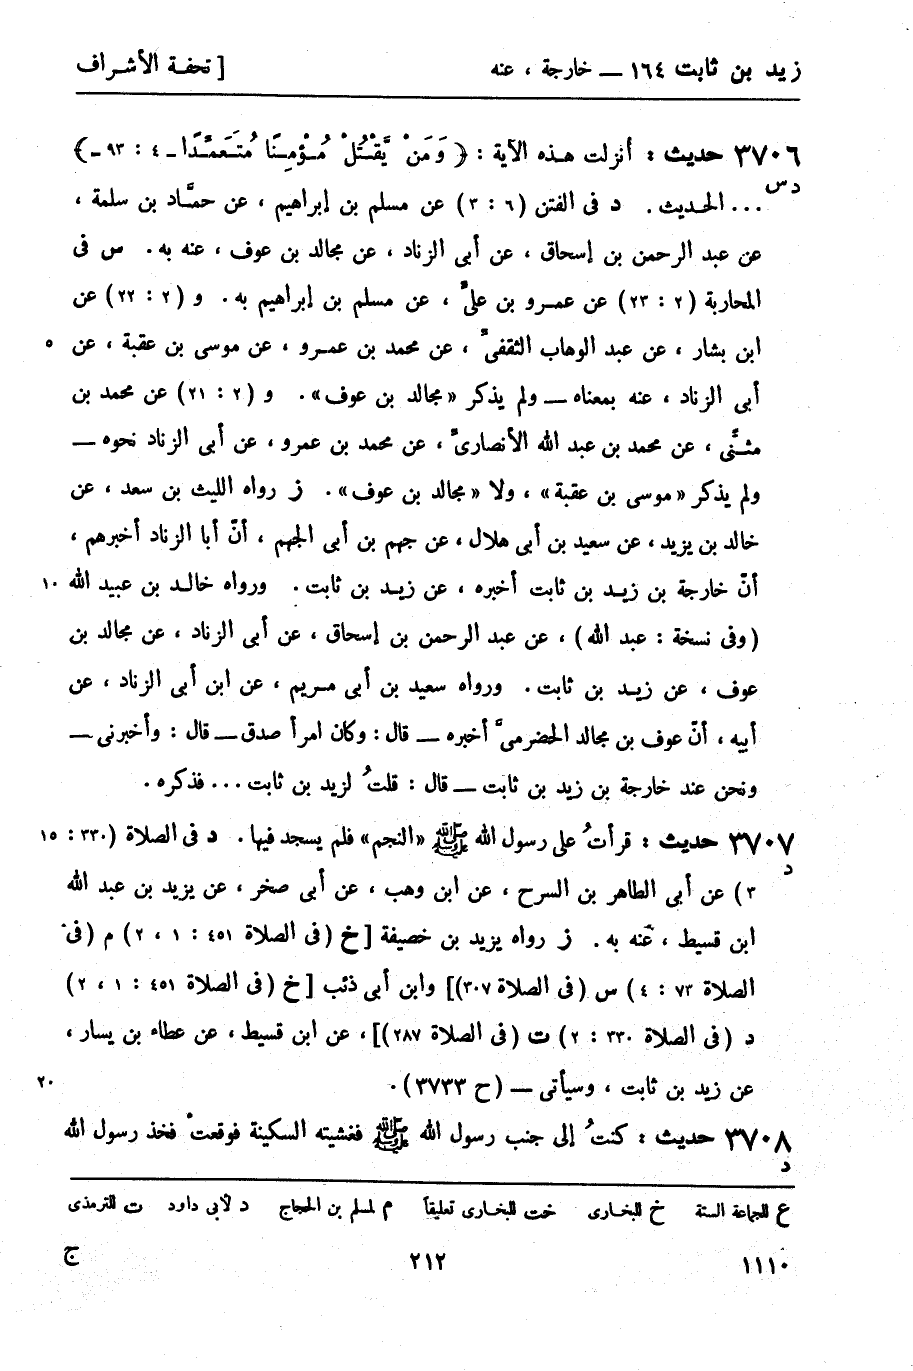 زيد بن ثابت ١٦٤ — خارجة ، عنه [ تحفة الأشراف
٣٧٠٦ حديث : أنزلت هذه الآية : ﴿ وَمَنْ يَّقْتُلْ مُؤْمِنًا مُتَعَمَّدًا ـ ٤ : ٩٣ ـ﴾
د س
... الحديث . د فى الفتن (٦ : ٣) عن مسلم بن إبراهيم ، عن حمَّاد بن سلمة ،
عن عبد الرحمن بن إسحاق ، عن أبى الزناد ، عن مجالد بن عوف ، عنه به . س فى
المحاربة (٢ : ٢٣) عن عمرو بن علىّ ، عن مسلم بن إبراهيم به . و (٢ : ٢٢) عن
ابن بشار ، عن عبد الوهاب الثقفىّ ، عن محمد بن عمرو ، عن موسى بن عقبة ، عن ٥
أبى الزناد ، عنه بمعناه — ولم يذكر «مجالد بن عوف» . و (٢ : ٢١) عن محمد بن
مثنَّى ، عن محمد بن عبد الله الأنصارىّ ، عن محمد بن عمرو ، عن أبى الزناد نحوه —
ولم يذكر «موسى بن عقبة» ، ولا «مجالد بن عوف» . ز رواه الليث بن سعد ، عن
خالد بن يزيد ، عن سعيد بن أبى هلال ، عن جهم بن أبى الجهم ، أنّ أبا الزناد أخبرهم ،
أنّ خارجة بن زيد بن ثابت أخبره ، عن زيد بن ثابت . ورواه خالد بن عبيد الله ١٠
(وفى نسخة : عبد الله) ، عن عبد الرحمن بن إسحاق ، عن أبى الزناد ، عن مجالد بن
عوف ، عن زيد بن ثابت . ورواه سعيد بن أبى مريم ، عن ابن أبى الزناد ، عن
أبيه ، أنّ عوف بن مجالد الحضرمىّ أخبره — قال : وكان امرأ صدق — قال : وأخبرنى —
ونحن عند خارجة بن زيد بن ثابت — قال : قلتُ لزيد بن ثابت ... فذكره .
٣٧٠٧ حديث : قرأتُ على رسول الله ﷺ «النجم» فلم يسجد فيها . د فى الصلاة (٣٣٠ : ١٥
د
٣) عن أبى الطاهر بن السرح ، عن ابن وهب ، عن أبى صخر ، عن يزيد بن عبد الله
ابن قسيط ، عنه به . ز رواه يزيد بن خصيفة [خ (فى الصلاة ٤٥١ : ١ ، ٢) م (فى
الصلاة ٧٣ : ٤) س (فى الصلاة ٣٠٧)] وابن أبى ذئب [خ (فى الصلاة ٤٥١ : ١ ، ٢)
د (فى الصلاة ٣٣٠ : ٢) ت (فى الصلاة ٢٨٧)] ، عن ابن قسيط ، عن عطاء بن يسار ،
عن زيد بن ثابت ، وسيأتى — (ح ٣٧٣٣) . ٢٠
٣٧٠٨ حديث : كنتُ إلى جنب رسول الله ﷺ فغشيته السكينة فوقعتْ فخذ رسول الله
د
ع للجماعة الستة خ للبخارى خت للبخارى تعليقاً م لمسلم بن الحجاج د لأبى داود ت للترمذى
١١١٠ ٢١٢ ج